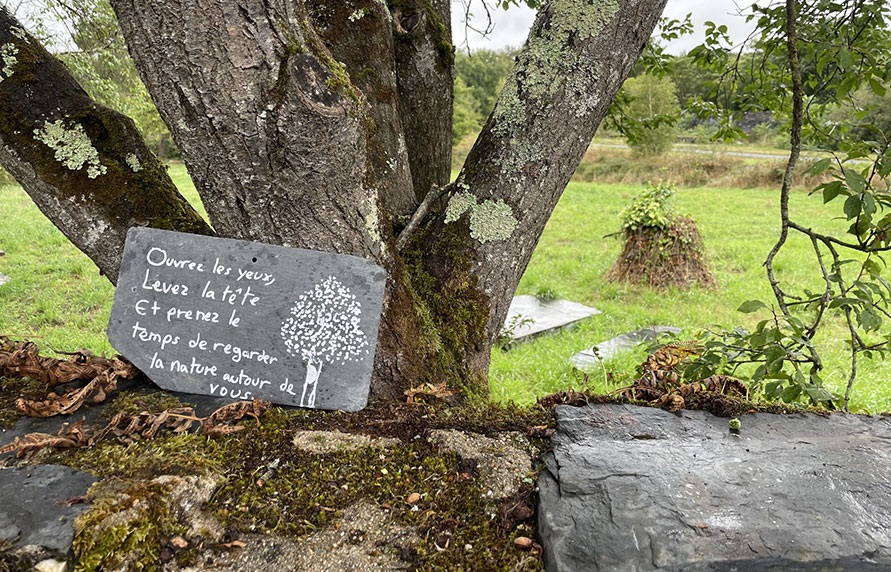 Ouvrez les yeux,
Levez la tête
Et prenez le
temps de regarder
la nature autour de
vous.